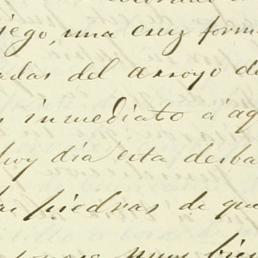 iego, una cruz form
adas del arroyo de
inmediato á aq
hoy dia esta desba
las piedras de que
muy bien